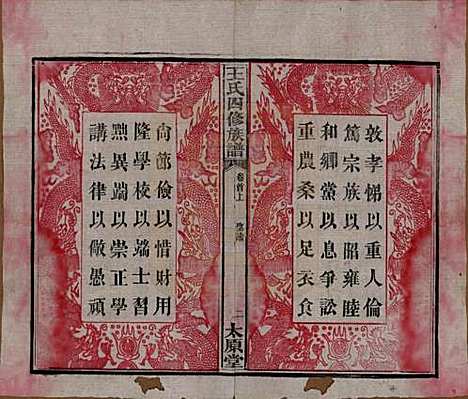 敦孝悌以重人倫
篤宗族以昭雍睦
和鄉黨以息爭訟
重農桑以足衣食
王氏四修族譜
卷首上
聖諭
二
太原堂
尙節儉以惜財用
隆學校以端士習
黜異端以崇正學
講法律以儆愚頑